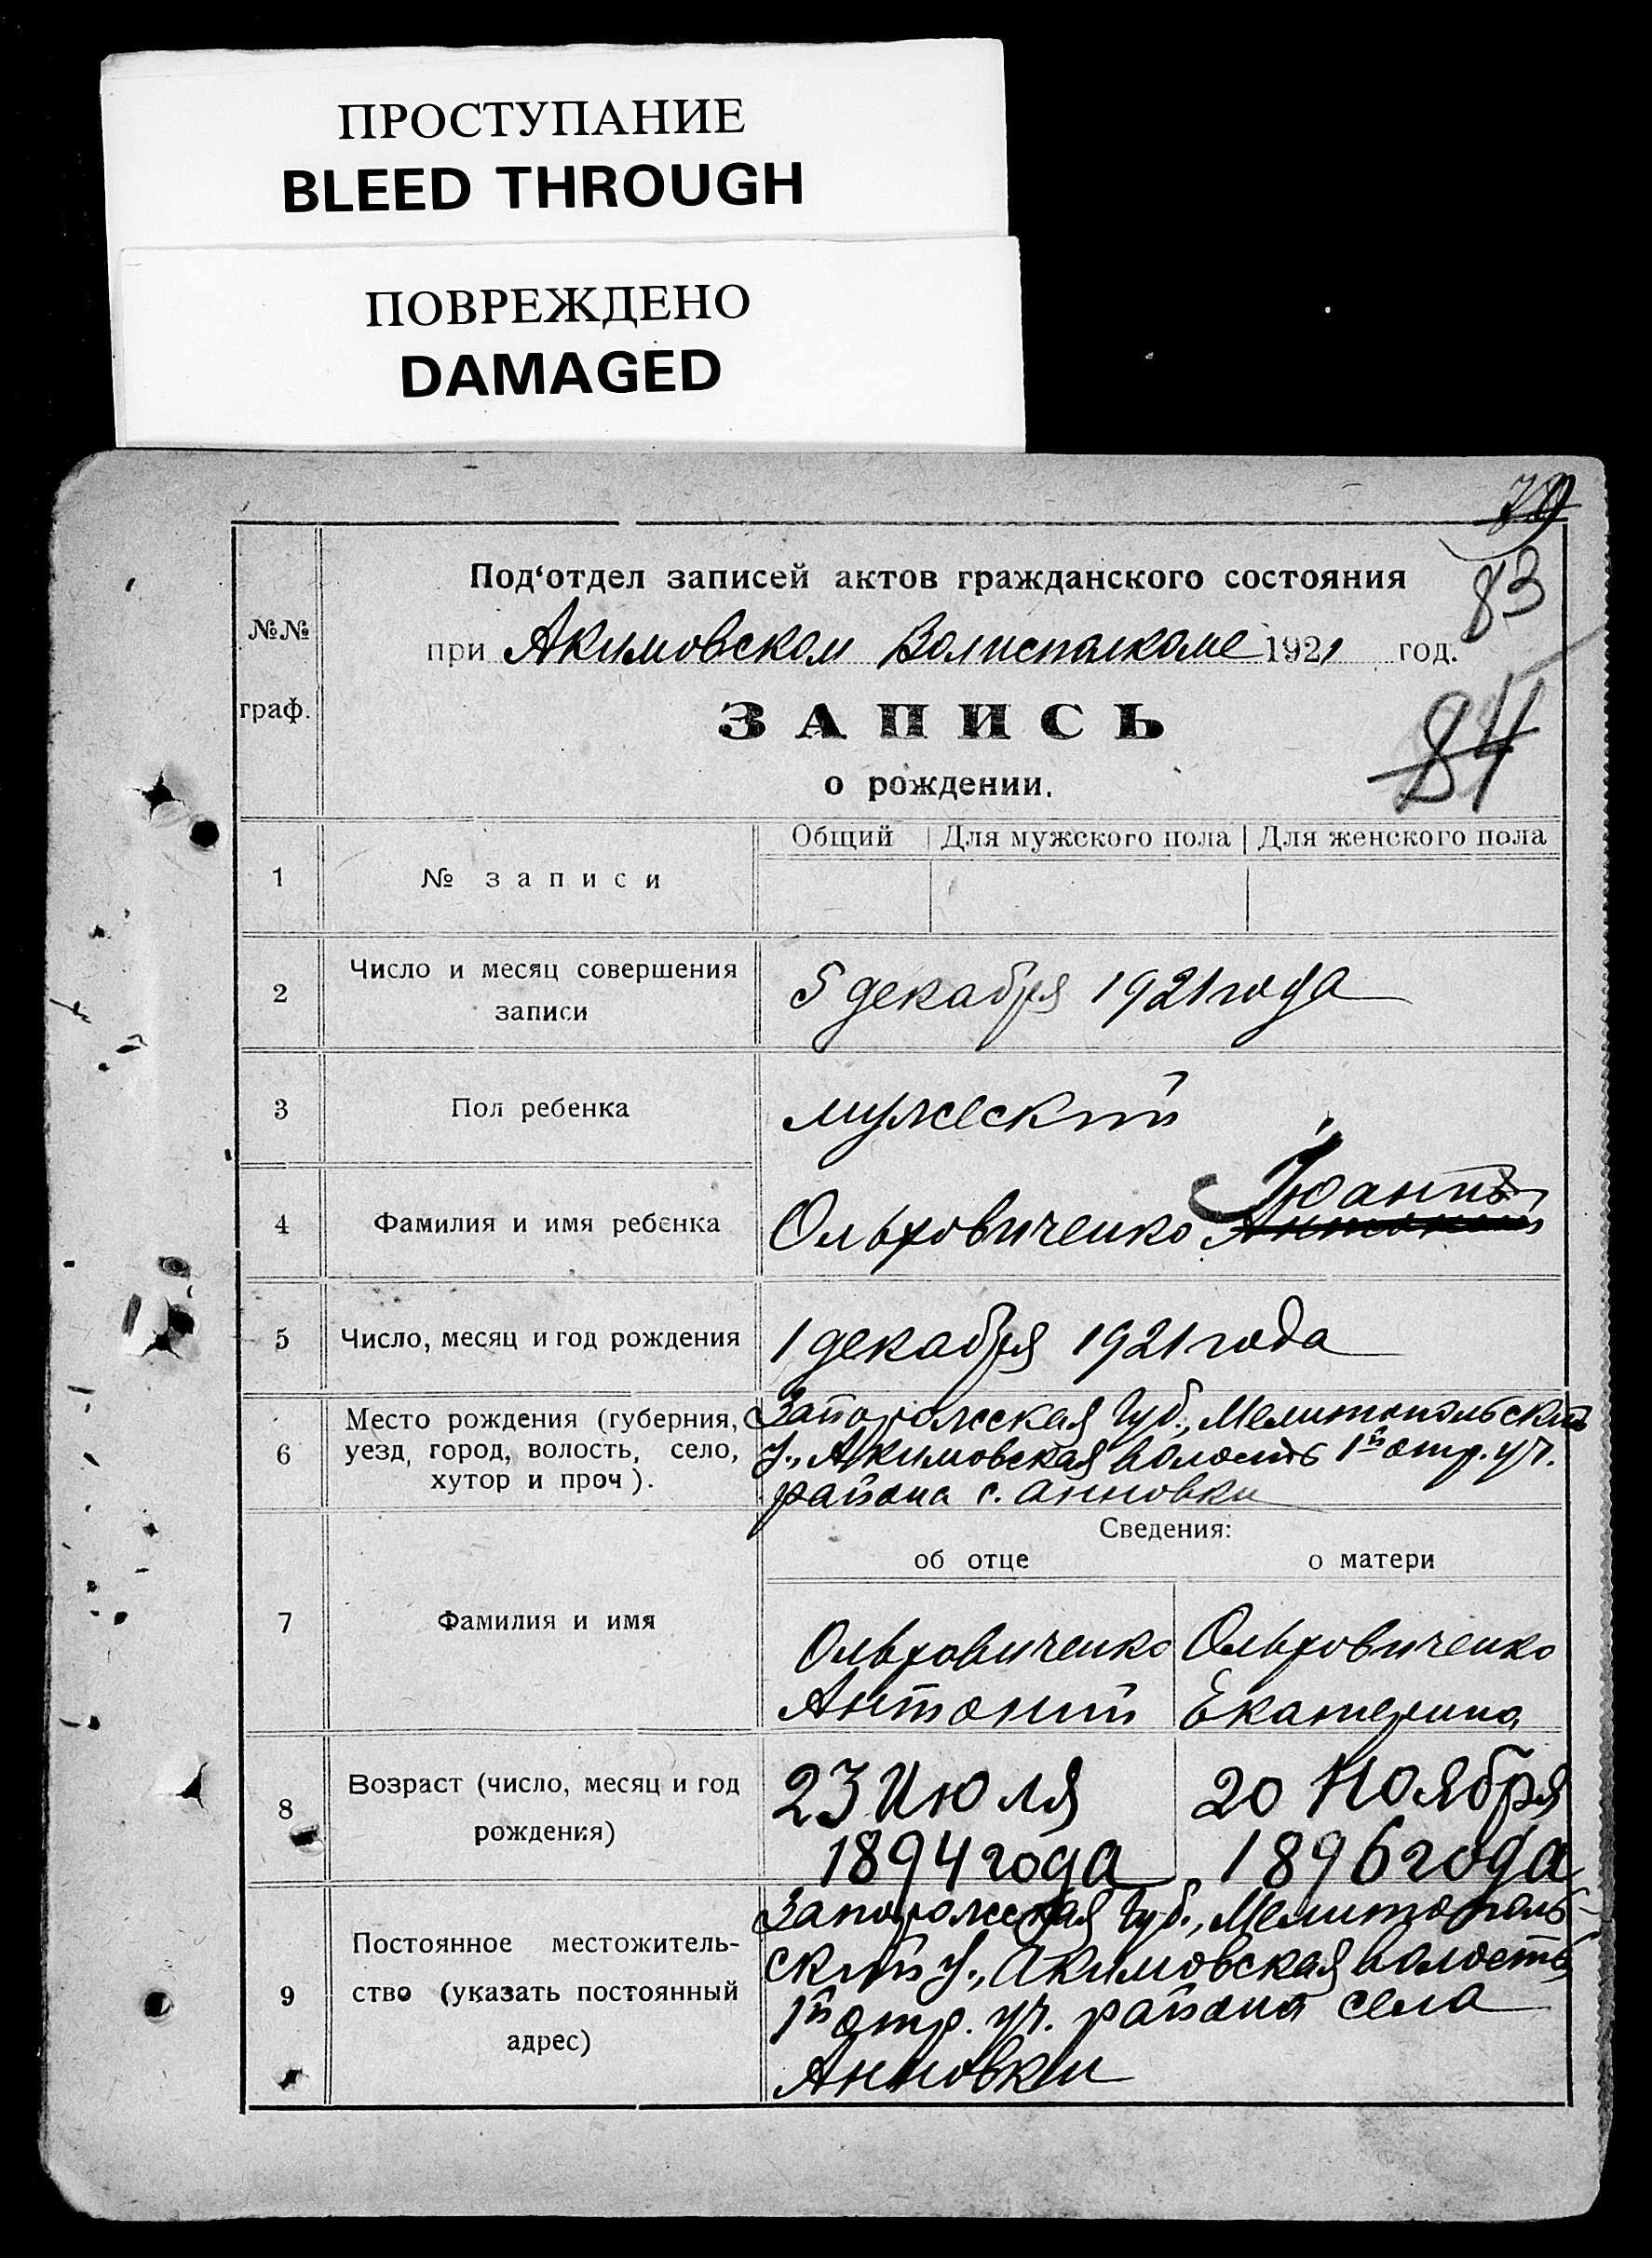 ПРОСТУПАНИЕ
BLEED THROUGH
ПОВРЕЖДЕНО
DAMAGED
83
84
№№
граф.
Под‘отдел записей актов гражданского состояния
при Акимовском Волисполкоме 1921 год.
ЗАПИСЬ
о рождении.
1
№ записи
Общий Для мужского пола Для женского пола
2
Число и месяц совершения
записи
5 декабря 1921 года
3
Пол ребенка
мужеский
4
Фамилия и имя ребенка
Иоаннъ
Ольховиченко
5
Число, месяц и год рождения
1 декабря 1921 года
6
Место рождения (губерния,
уезд, город, волость, село,
хутор и проч).
Запорожская Губ., Мелитопольский
у., Акимовская волость 1й отр. уч.
района с. Анновки
Сведения:
об отце о матери
7
Фамилия и имя
Ольховиченко
Антоний
Ольховиченко
Екатерина
8
Возраст (число, месяц и год
рождения)
23 Июля
1894 года
20 Ноября
1896 года
9
Постоянное местожитель-
ство (указать постоянный
адрес)
Запорожская Губ., Мелитополь-
ский у., Акимовская волость
1й отр. уч. района села
Анновки